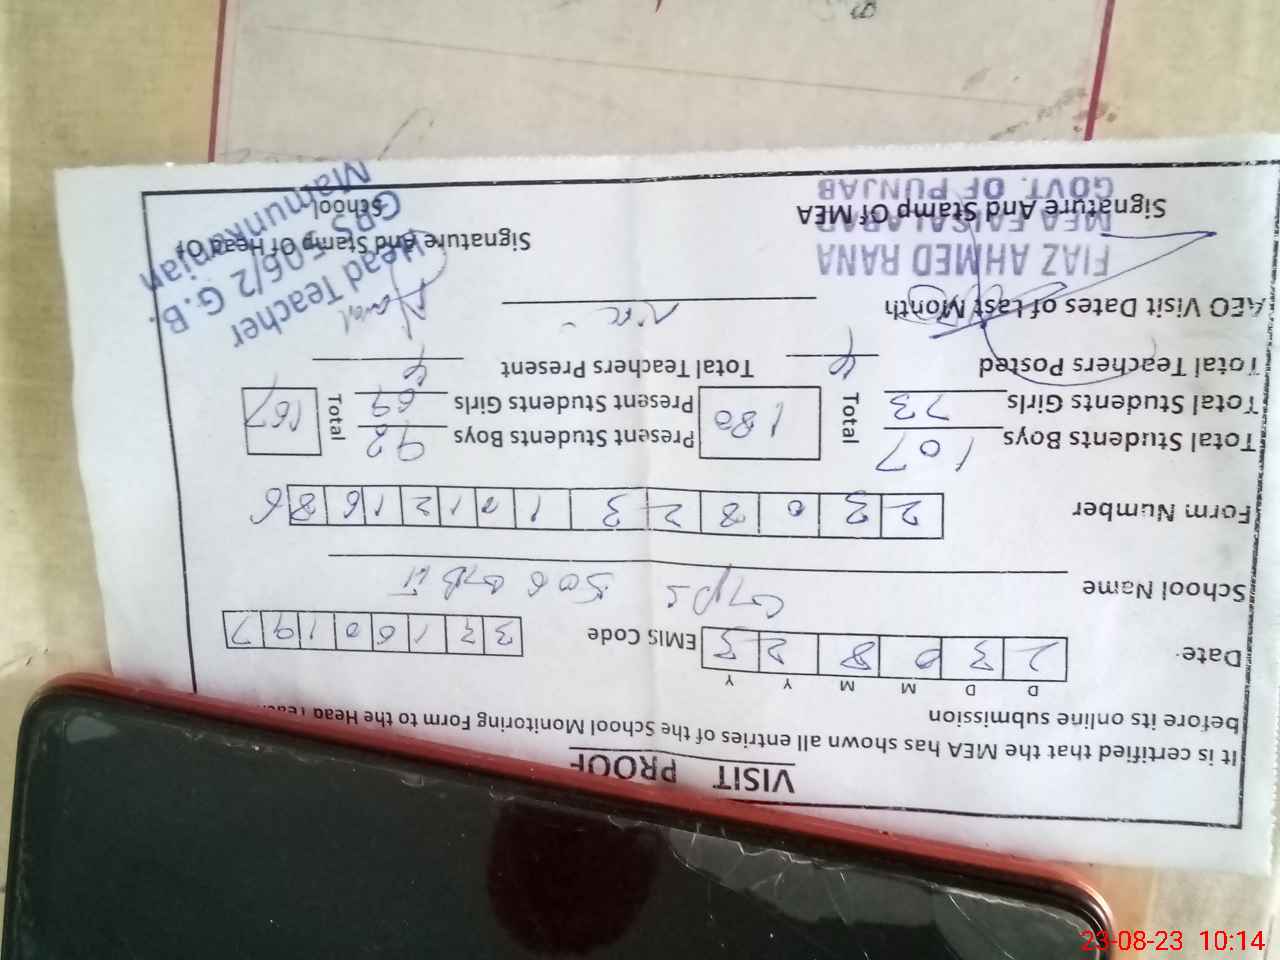 VISIT PROOF
It is certified that the MEA has shown all entries of the School Monitoring Form to the Head
before its online submission
D D M M Y Y
Date 2 3 0 8 2 3 EMIS Code 3 3 1 6 0 1 9 7
School Name GPS 506 GB II
Form Number 2 3 0 8 2 3 1 0 1 2 1 6 8 6
Total Students Boys 107 Total 180 Present Students Boys 98 Total 167
Total Students Girls 73 Present Students Girls 69
Total Teachers Posted 4 Total Teachers Present 4
AEO Visit Dates of Last Month Nil
FIAZ AHMED RANA
MEA FAISALABAD
GOVT. OF PUNJAB
Signature And Stamp Of MEA
Head Teacher
GPS 506/2 G.B.
Mamunkanjan
Signature And Stamp Of Head Of
School
23-08-23 10:14